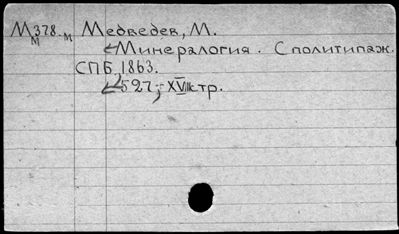 М 378. м Медведев, М.
м
Минералогия. С политипаж.
СПБ, 1863.
527; XVIII стр.